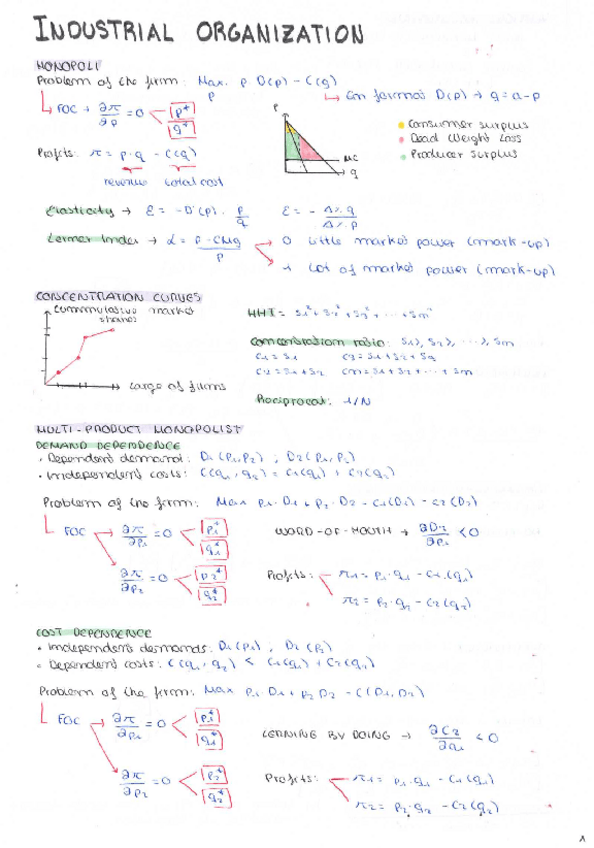 INDUSTRIAL ORGANIZATION
MONOPOLI
Problem of the firm: Max. p D(p) - C(q)
p
Con forma D(p) → q = a-p
FOC → ∂π/∂p = 0
p*
q*
P
MC
q
Consumer surplus
Dead Weight Loss
Producer surplus
Profits: π = p·q - C(q)
revenue total cost
Elasticity → ε = -D'(p) · p/q ε = - Δ%q/Δ%p
Lerner Index → L = p-CMg/p
0 Little market power (mark-up)
1 Lot of market power (mark-up)
CONCENTRATION CURVES
cummulative market shares
Large of firms
HHI = S1² + S2² + S3² + ... + Sm²
Concentration ratio: S1>, S2>, ..., Sm
C1 = S1 C3 = S1 + S2 + S3
C2 = S1 + S2 Cm = S1 + S2 + ... + Sm
Reciprocal: 1/N
MULTI-PRODUCT MONOPOLIST
DEMAND DEPENDENCE
· Dependent demand: D1(P1,P2) ; D2(P1,P2)
· Independent costs: C(q1,q2) = C1(q1) + C2(q2)
Problem of the firm: Max P1·D1 + P2·D2 - C1(D1) - C2(D2)
FOC → ∂π/∂p1 = 0
p1*
q1*
WORD-OF-MOUTH → ∂D2/∂p1 < 0
∂π/∂p2 = 0
p2*
q2*
Profits: π1 = p1·q1 - C1(q1)
π2 = p2·q2 - C2(q2)
COST DEPENDENCE
· Independent demands: D1(P1), D2(P2)
· Dependent costs: C(q1,q2) < C1(q1) + C2(q2)
Problem of the firm: Max P1 D1 + P2 D2 - C(D1,D2)
FOC → ∂π/∂p1 = 0
p1*
q1*
LERNING BY DOING → ∂C2/∂q1 < 0
∂π/∂p2 = 0
p2*
q2*
Profits: π1 = p1·q1 - C1(q1)
π2 = p2·q2 - C2(q2)
1